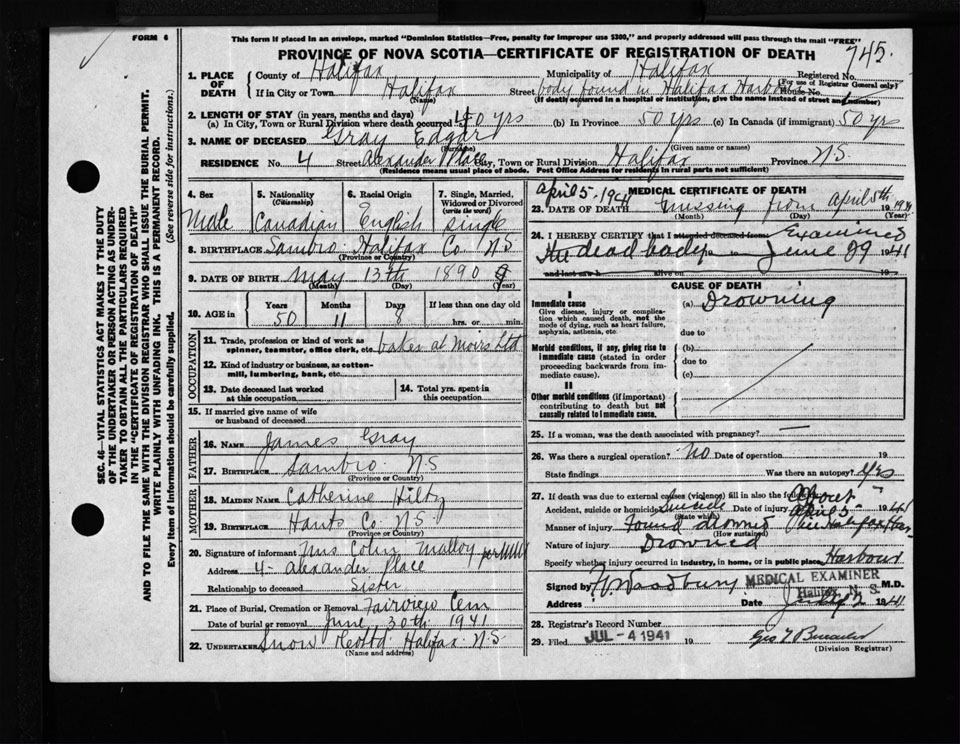 FORM 6
This form if placed in an envelope, marked "Dominion Statistics—Free, penalty for improper use $300," and properly addressed will pass through the mail "FREE"
PROVINCE OF NOVA SCOTIA—CERTIFICATE OF REGISTRATION OF DEATH
745.
1. PLACE OF DEATH
County of Halifax Municipality of Halifax Registered No.
(For use of Registrar General only)
If in City or Town Halifax Street body found in Halifax Harbour House No.
(Name) (If death occurred in a hospital or institution, give the name instead of street and number)
2. LENGTH OF STAY (in years, months and days)
(a) In City, Town or Rural Division where death occurred 40 yrs (b) In Province 50 yrs (c) In Canada (if immigrant) 50 yrs
3. NAME OF DECEASED Gray Edgar
(Surname) (Given name or names)
RESIDENCE No. 4 Street Alexander Place City, Town or Rural Division Halifax Province N.S.
(Residence means usual place of abode. Post Office Address for residents in rural parts not sufficient)
SEC. 46—VITAL STATISTICS ACT MAKES IT THE DUTY
OF THE UNDERTAKER OR PERSON ACTING AS UNDER-
TAKER TO OBTAIN ALL THE PARTICULARS REQUIRED
IN THE "CERTIFICATE OF REGISTRATION OF DEATH"
AND TO FILE THE SAME WITH THE DIVISION REGISTRAR WHO SHALL ISSUE THE BURIAL PERMIT.
WRITE PLAINLY WITH UNFADING INK. THIS IS A PERMANENT RECORD.
Every item of Information should be carefully supplied. (See reverse side for instructions.)
4. Sex
Male
5. Nationality
(Citizenship)
Canadian
6. Racial Origin
English
7. Single, Married,
Widowed or Divorced
(write the word)
Single
8. BIRTHPLACE Sambro Halifax Co N.S
(Province or Country)
9. DATE OF BIRTH May 13th 1890
(Month) (Day) (Year)
10. AGE in
Years Months Days If less than one day old
50 11 8 hrs. or min.
OCCUPATION
11. Trade, profession or kind of work as
spinner, teamster, office clerk, etc. baker at Moirs Ltd
12. Kind of industry or business, as cotton-
mill, lumbering, bank, etc.
13. Date deceased last worked
at this occupation
14. Total yrs. spent in
this occupation
15. If married give name of wife
or husband of deceased
FATHER
16. NAME James Gray
17. BIRTHPLACE Sambro N.S
(Province or Country)
MOTHER
18. MAIDEN NAME Catherine Hilty
19. BIRTHPLACE Hants Co N.S.
(Province or Country)
20. Signature of informant Mrs Colin Malloy per
Address 4- Alexander Place
Relationship to deceased Sister
21. Place of Burial, Cremation or Removal Fairview Cem
Date of burial or removal June 30th 1941
22. UNDERTAKER Snow & Co Ltd Halifax N.S.
(Name and address)
MEDICAL CERTIFICATE OF DEATH
April 5-1941
23. DATE OF DEATH missing from April 5th 1941
(Month) (Day) (Year)
24. I HEREBY CERTIFY that I attended deceased from Examined
the dead body June 29 1941
and last saw h alive on 19
CAUSE OF DEATH
I
Immediate cause
Give disease, injury or complica-
tion which caused death, not the
mode of dying, such as heart failure,
asphyxia, asthenia, etc.
(a) Drowning
due to
Morbid conditions, if any, giving rise to
immediate cause (stated in order
proceeding backwards from im-
mediate cause).
(b)
due to
(c)
II
Other morbid conditions (if important)
contributing to death but not
causally related to immediate cause.
25. If a woman, was the death associated with pregnancy? —
26. Was there a surgical operation? No Date of operation 19
State findings Was there an autopsy? Yes
27. If death was due to external causes (violence) fill in also the following: About
Accident, suicide or homicide Suicide Date of April 5- 1941
(State which)
Manner of injury Found drowned in Halifax Har
(How sustained)
Nature of injury Drowned
Specify whether injury occurred in industry, in home, or in public place, Harbour
Signed by Woodbury MEDICAL EXAMINER M.D.
Halifax, N. S.
Address Date July 2 1941
28. Registrar's Record Number
29. Filed JUL - 4 1941 19
(Division Registrar)